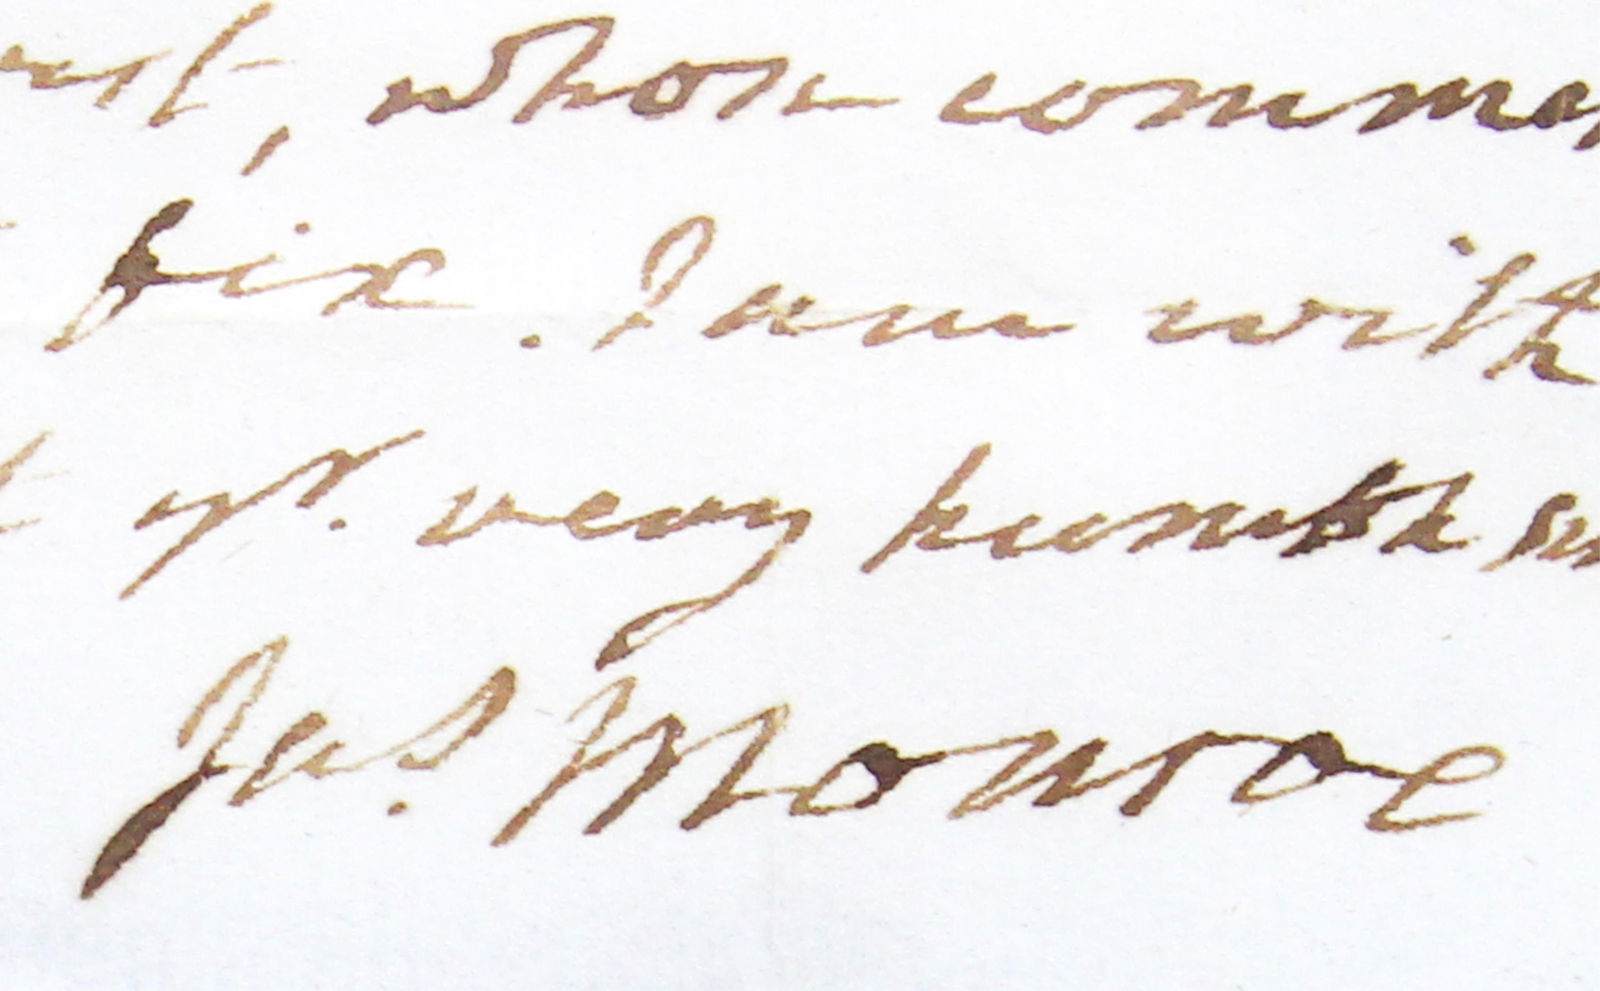 whom commen
fix. I am with
yr. very humble ser
Jas. Monroe